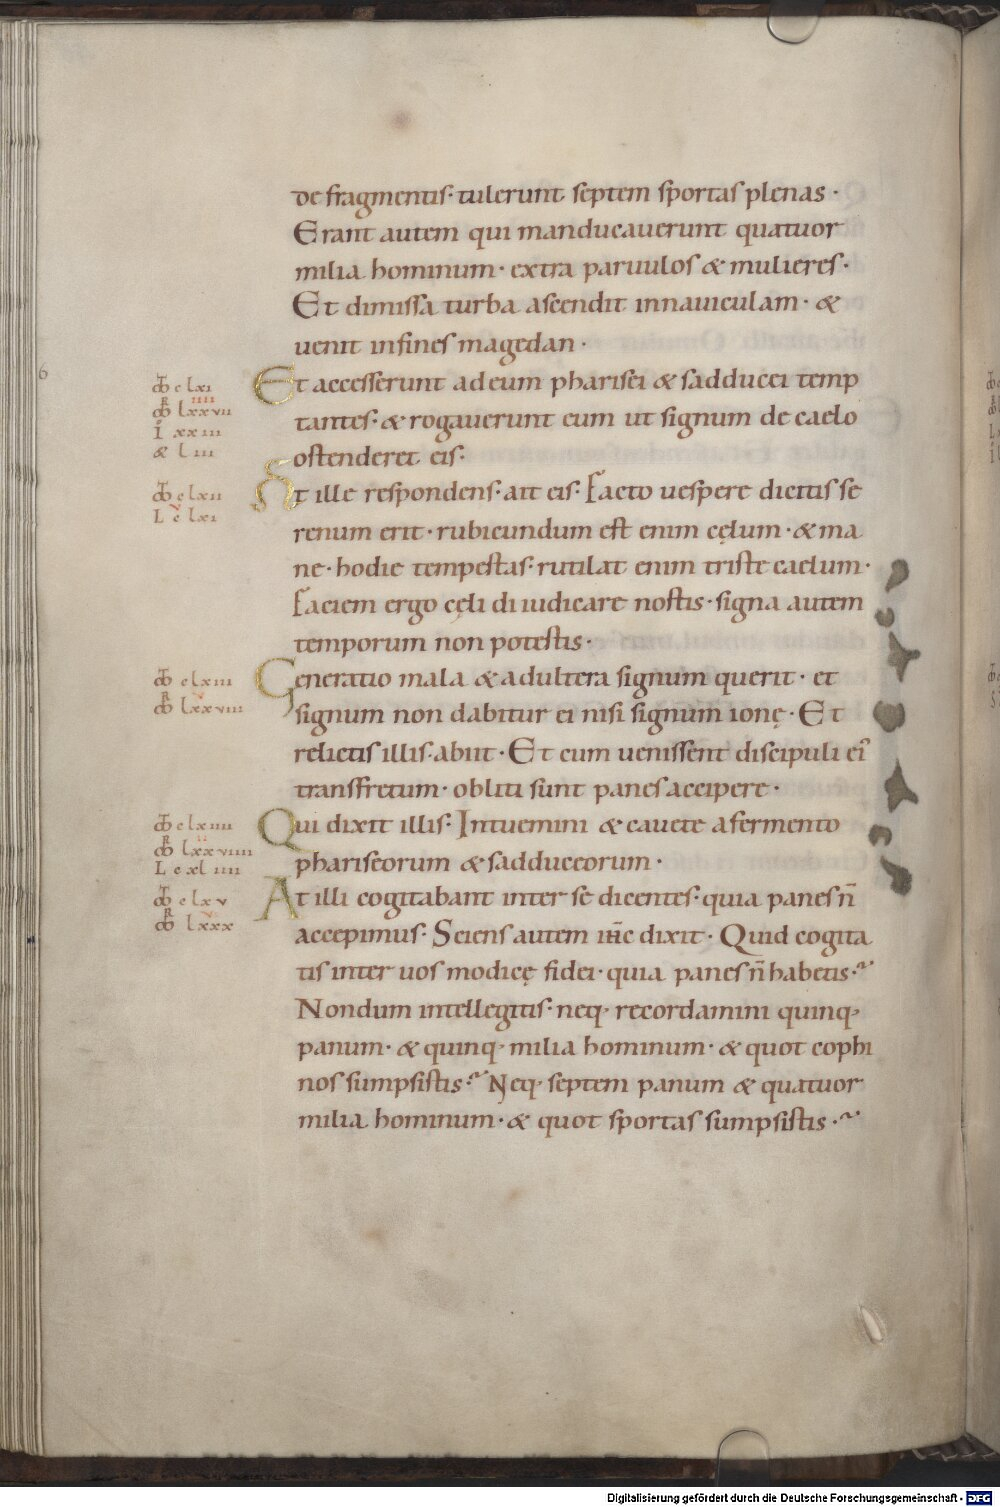 de fragmentis· tulerunt septem sportas plenas·
Erant autem qui manducauerunt quatuor
milia hominum· extra paruulos & mulieres·
Et dimissa turba ascendit innauiculam· &
uenit infines magedan·
Et accesserunt adeum pharisei & sadducei temp
tantes· & rogauerunt eum ut signum de caelo
ostenderet eis·
At ille respondens· ait eis· Facto uespere dicitis se
renum erit· rubicundum est enim cęlum· & ma
ne· hodie tempestas· rutilat enim triste caelum·
Faciem ergo cęli diiudicare nostis· signa autem
temporum non potestis·
Generatio mala & adultera signum querit· et
signum non dabitur ei nisi signum ionę· Et
relictis illis· abiit· Et cum uenissent discipuli ei᾽
transfretum· obliti sunt panes accipere·
Qui dixit illis· Intuemini & cauete afermento
phariseorum & sadduceorum·
At illi cogitabant inter se dicentes· quia panes n̄
accepimus· Sciens autem ih̄c dixit· Quid cogita
tis inter uos modicę fidei· quia panes n̄ habetis·
Nondum intellegitis· neq· recordamini quinq·
panum· & quinq· milia hominum· & quot cophi
nos sumpsistis· Neq· septem panum & quatuor
milia hominum· & quot sportas sumpsistis·
6
c lxi
lxxvii
iiii
I xxiii
& liii
c lxii
L c lxi
v
c lxiii
lxxviii
v
c lxiiii
lxxviiii
ii
L cxliiii
c lxv
lxxx
v
Digitalisierung gefördert durch die Deutsche Forschungsgemeinschaft - DFG